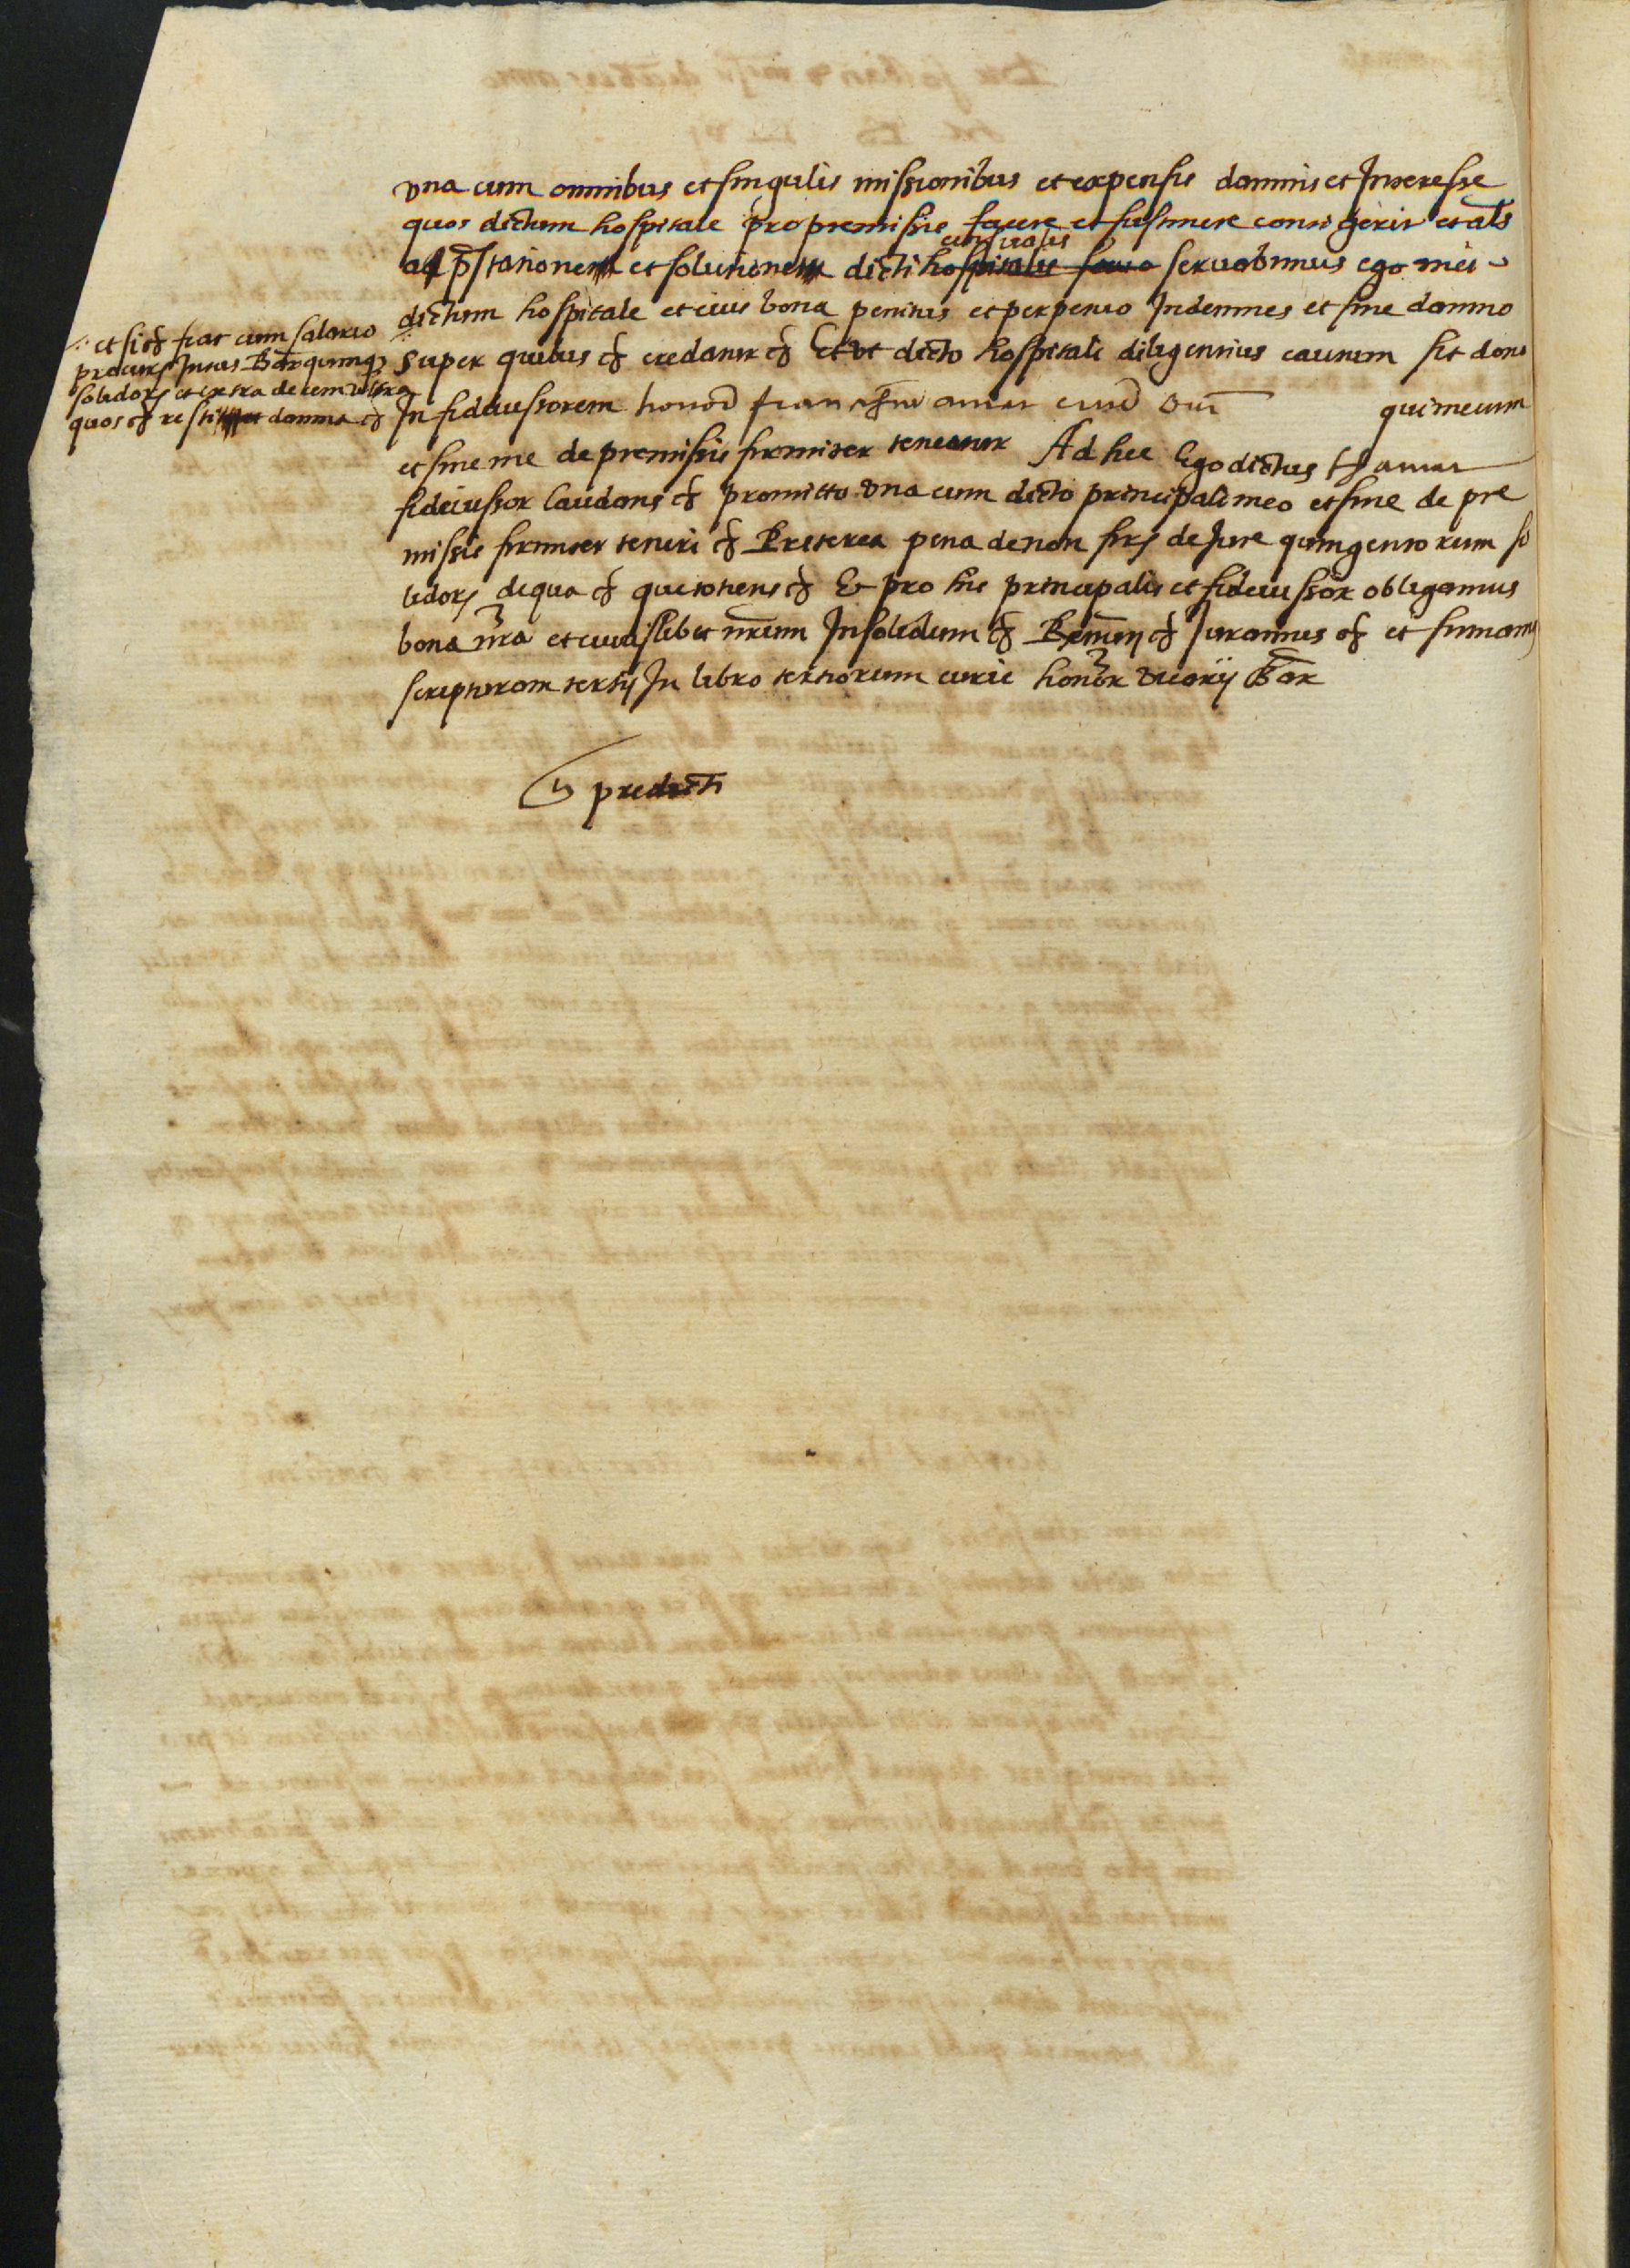 vna cum omnibus et singulis missionibus et expensis damnis et Interesse
quos dictum hospitale pro premissis facere et sustinere contigerit et als
a pstatione et solutione dicti hospitalis seruabimus ego mei
censualis
dictum hospitale et eius bona penitus et perpetuo Indemnes et sine damno
super quibus et credatur et Et vt dicto hospitali diligentius cautum sit dono
In fideiussorem honor amar qui mecum
et sine me de premissis firmiter teneatur Ad hec Ego dictus amar
fideiussor laudans et promitto vna cum dicto principali meo et sine de pre
missis firmiter teneri et Preterea pena de non firs de Jure quingentorum so
lidors de qua et quetotiens et Et pro his principalis et fideiussor obligamus
bona nra et cuiuslibet nrum Insolidum et Renun et Juramus et et firmamus
scripturam tertij In libro tertiorum curie honor vicarij Bar
predicti
et si et fiat cum salario
procurs Intus Bar quinqz
solidors et extra decem vltra
quos et restit damna et